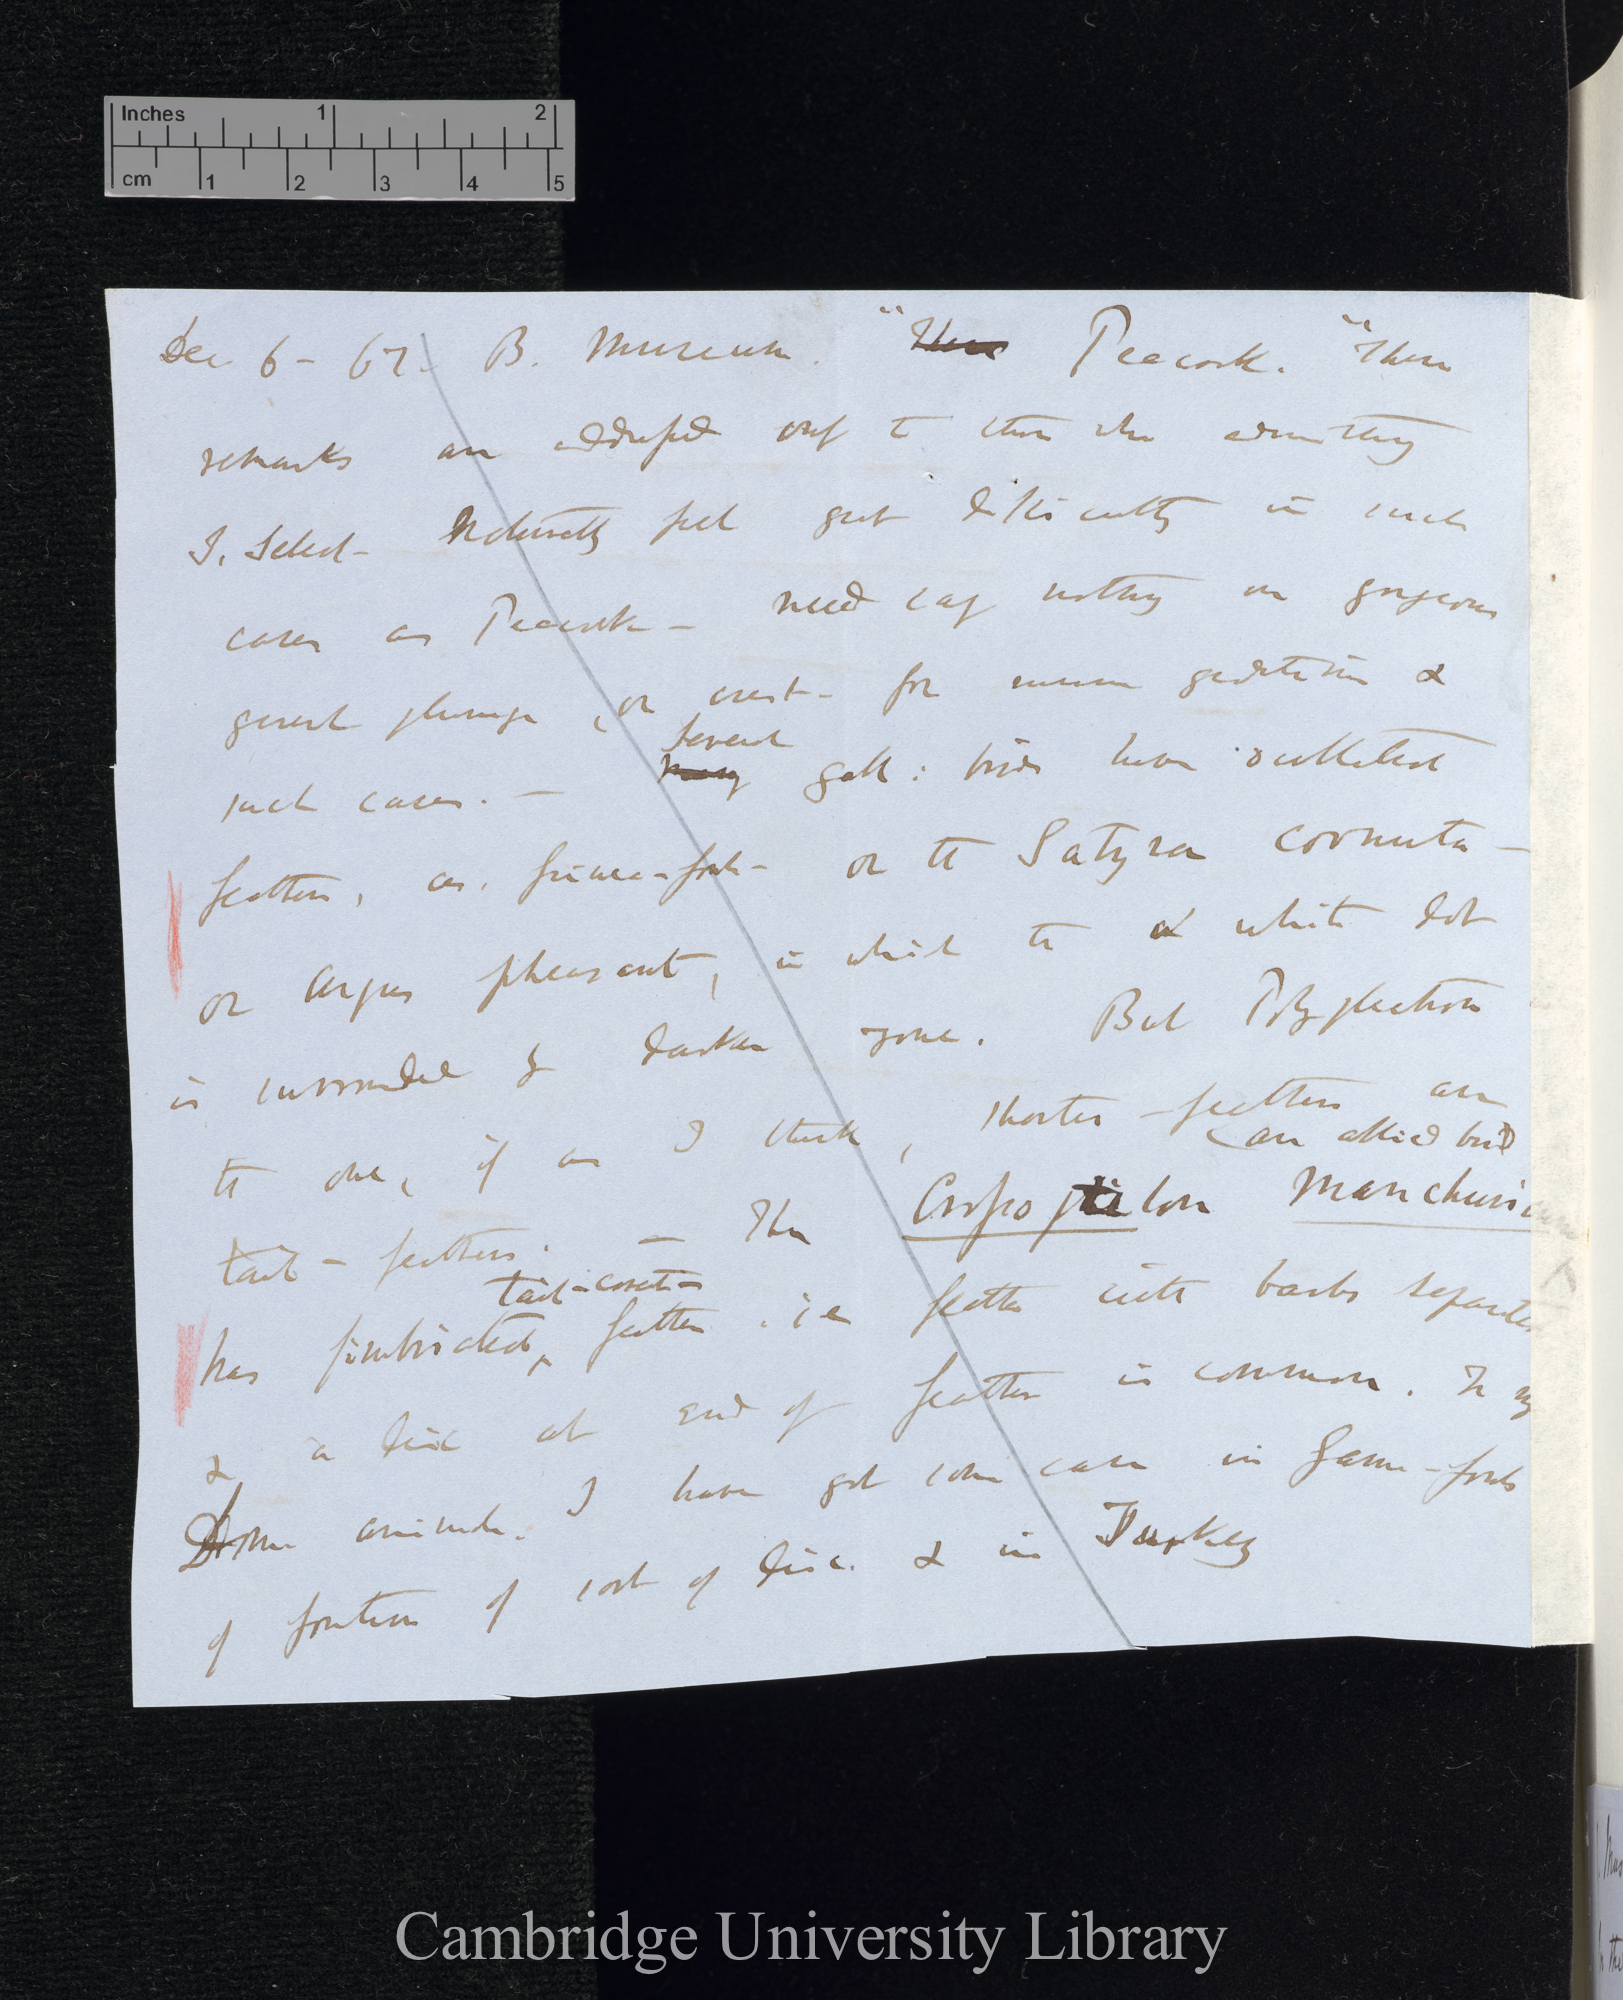 Inches 1 2
cm 1 2 3 4 5
Dec 6 - 67. B. Museum. "These Peacock. "These
remarks are addressed only to those who admitting
S. Select- naturally feel great difficulty in such
cases as Peacock - need say nothing on gorgeous
general plumage, or crest - for mere gradation &
such cases. — many several gall: birds have ocellated
feathers, as. Guinea-fowl - or the Satyra cornuta -
or argus pheasant, in which the a white dot
is surrounded by darker zone. But Polyplectron
the one, if as I think, shorter - feathers are
tail - feathers. — The Crossoptilon Manchuri (an allied bird
has fimbricated tail-covert- feather. ie feather with barbs separate
& a disc at end of feather is common. In my
Dom animals. I have got some case in Game-fowls
of portion of sort of disc. & in Turkey
Cambridge University Library